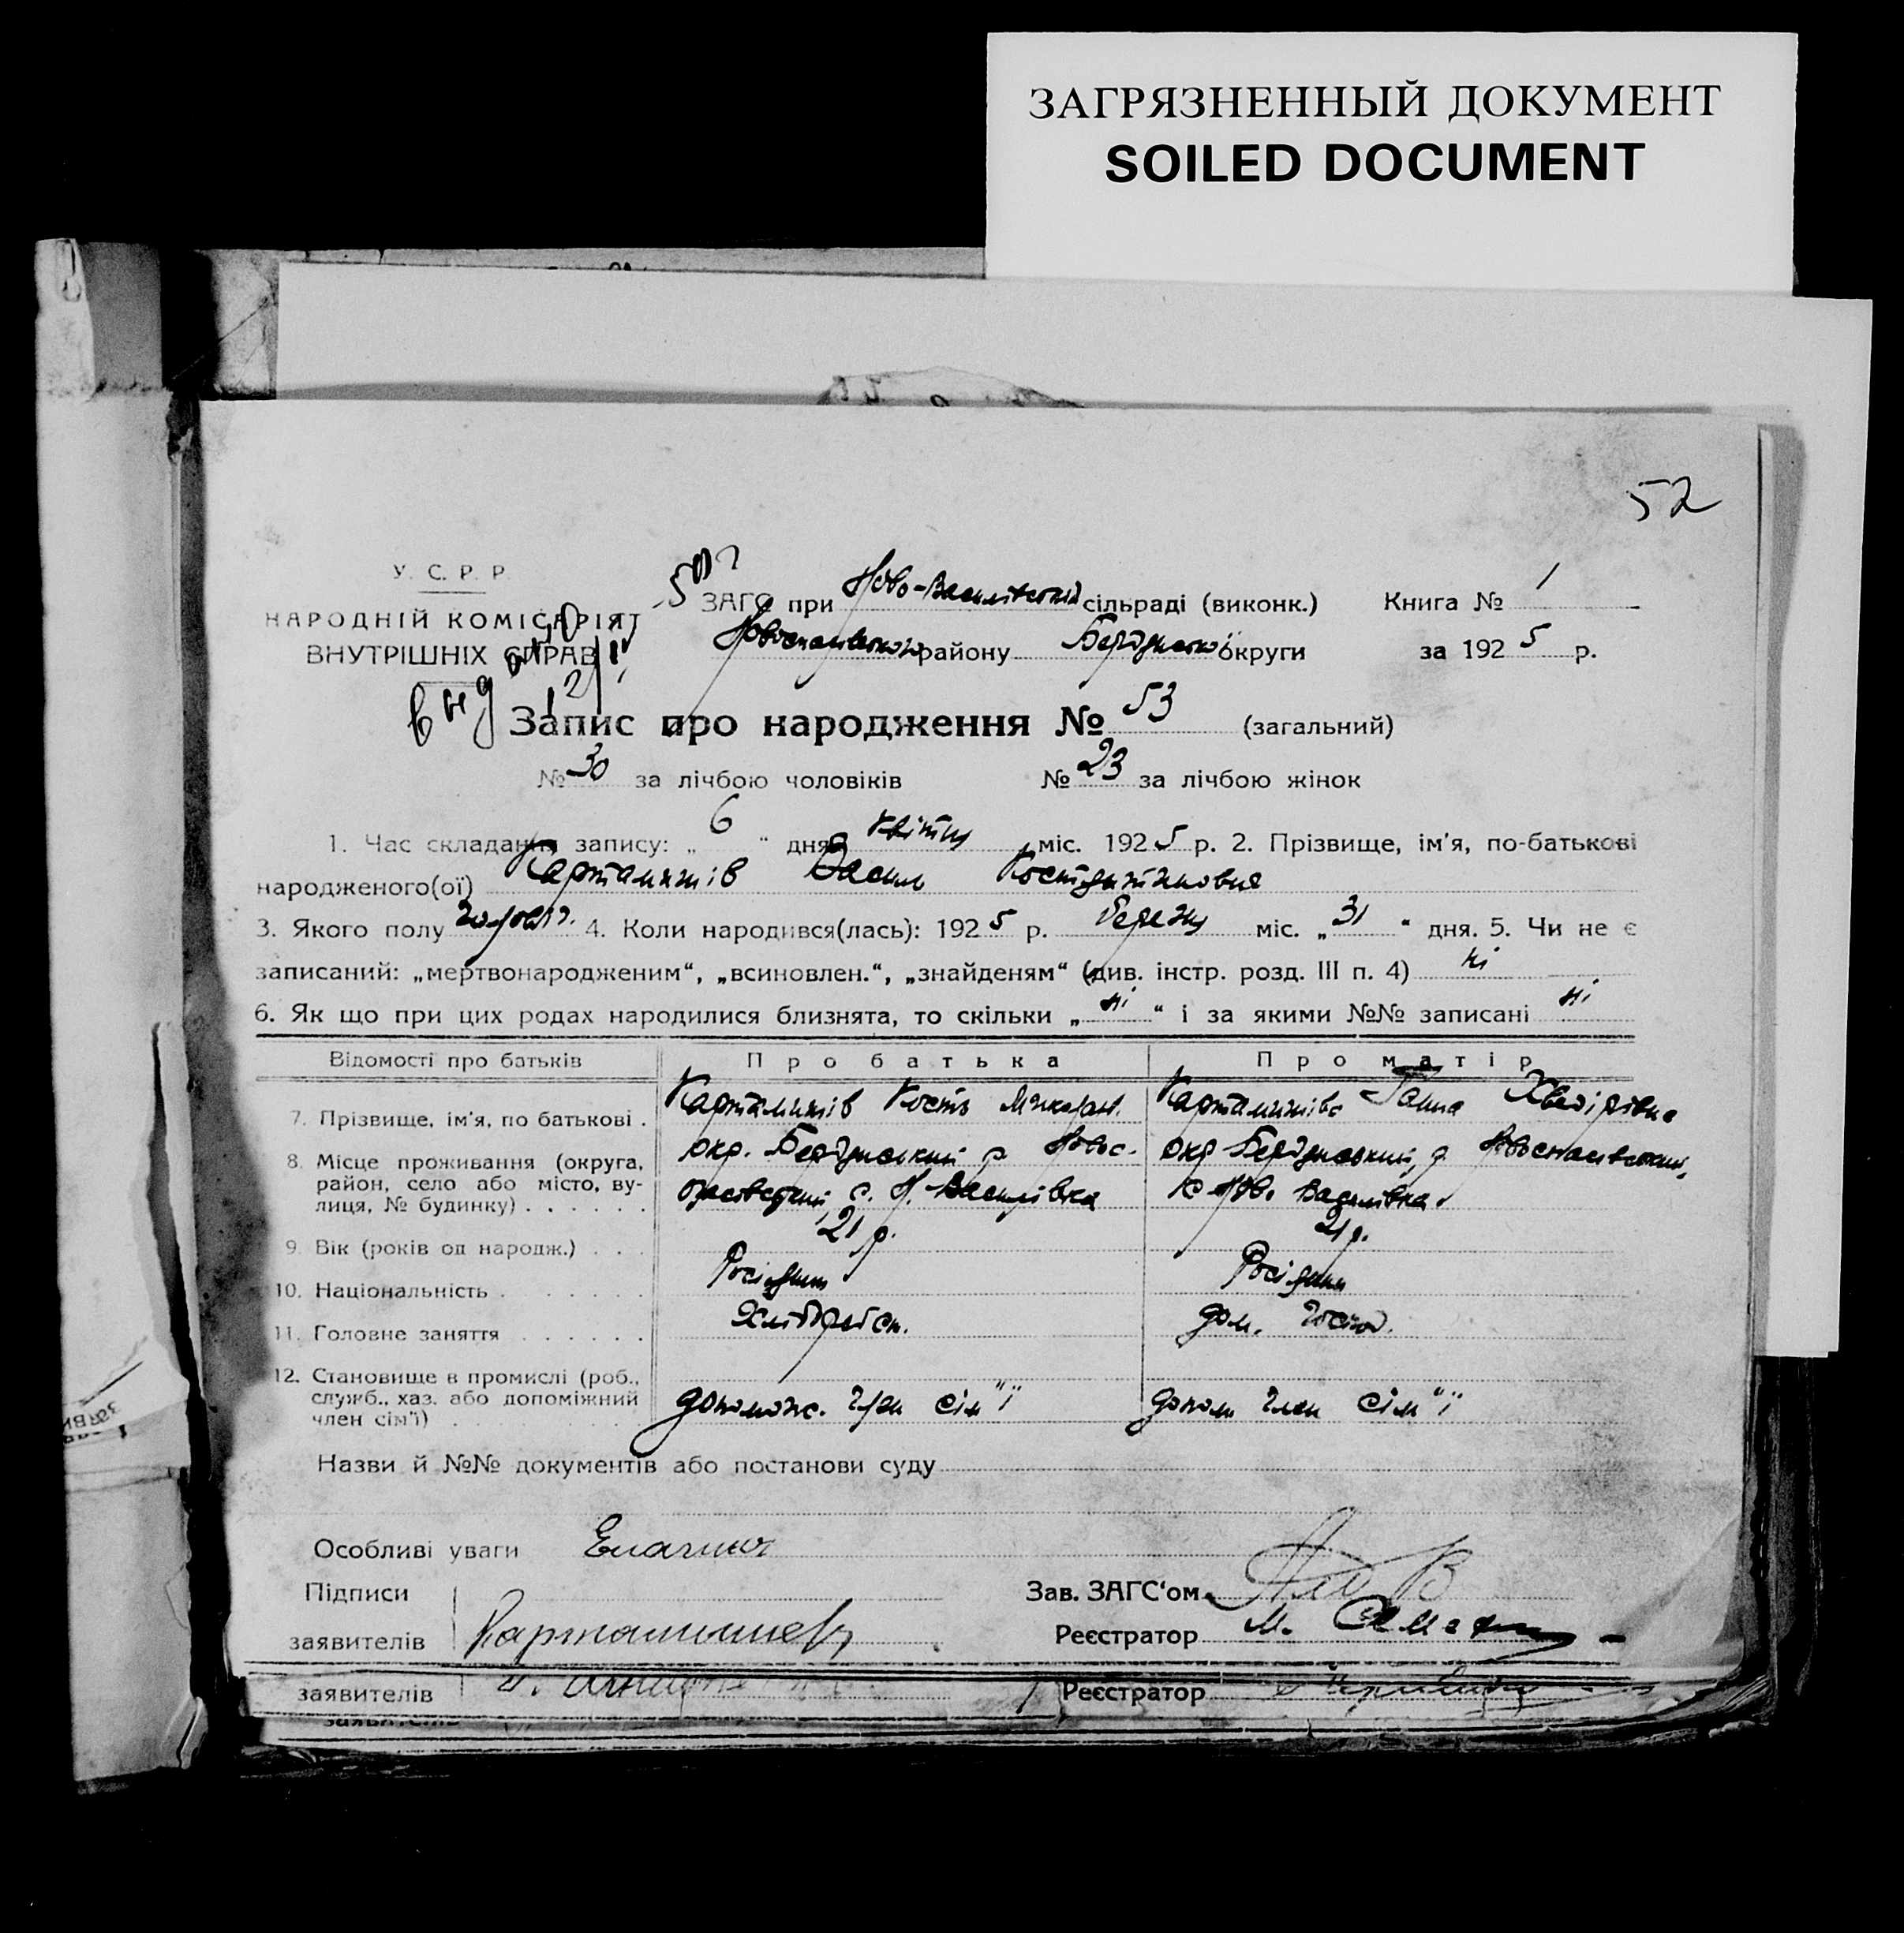 ЗАГРЯЗНЕННЫЙ ДОКУМЕНТ
SOILED DOCUMENT
52
У. С. Р. Р.
НАРОДНІЙ КОМІСАРІЯТ
ВНУТРІШНІХ СПРАВ
ЗАГС при Ново-Василівській сільраді (виконк.) Книга № 1
Новоспасівського району Бердянської округи за 1925 р.
Запис про народження № 53 (загальний)
№ 30 за лічбою чоловіків № 23 за лічбою жінок
1. Час складання запису: „ 6 “ дня квітня міс. 1925 р. 2. Прізвище, ім'я, по-батькові
народженого(ої) Карташів Василь
3. Якого полу 4. Коли народився(лась): 1925 р. березня міс. „ 31 “ дня. 5. Чи не є
записаний: „мертвонародженим“, „всиновлен.“, „знайденям“ (див. інстр. розд. III п. 4) ні
6. Як що при цих родах народилися близнята, то скільки „ ні “ і за якими №№ записані ні
Відомості про батьків Про батька Про матір
7. Прізвище, ім'я, по батькові . Кость Ганна Хведірівна
8. Місце проживання (округа, окр. Бердянський р Новос- окр Бердянський, р. Новоспасівський,
район, село або місто, ву- с. Н.-Василівка с Ново Василівка
лиця, № будинку) . . . . . .
9. Вік (років од народж.) . . . 21 р. 21 р.
10. Національність . . . . . . Росіянин Росіянка
11. Головне заняття . . . . . . Хлібороб дом. госп.
12. Становище в промислі (роб.,
служб., хаз. або допоміжний допомож. член сім"ї допом член сім"ї
член сім'ї) . . .
Назви й №№ документів або постанови суду
Особливі уваги
Підписи Зав. ЗАГС‘ом
заявителів Реєстратор М.
заявителів Реєстратор
заявителів